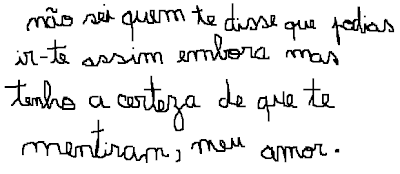 não sei quem te disse que podias
ir-te assim embora mas
tenho a certeza de que te
mentiram, meu amor.